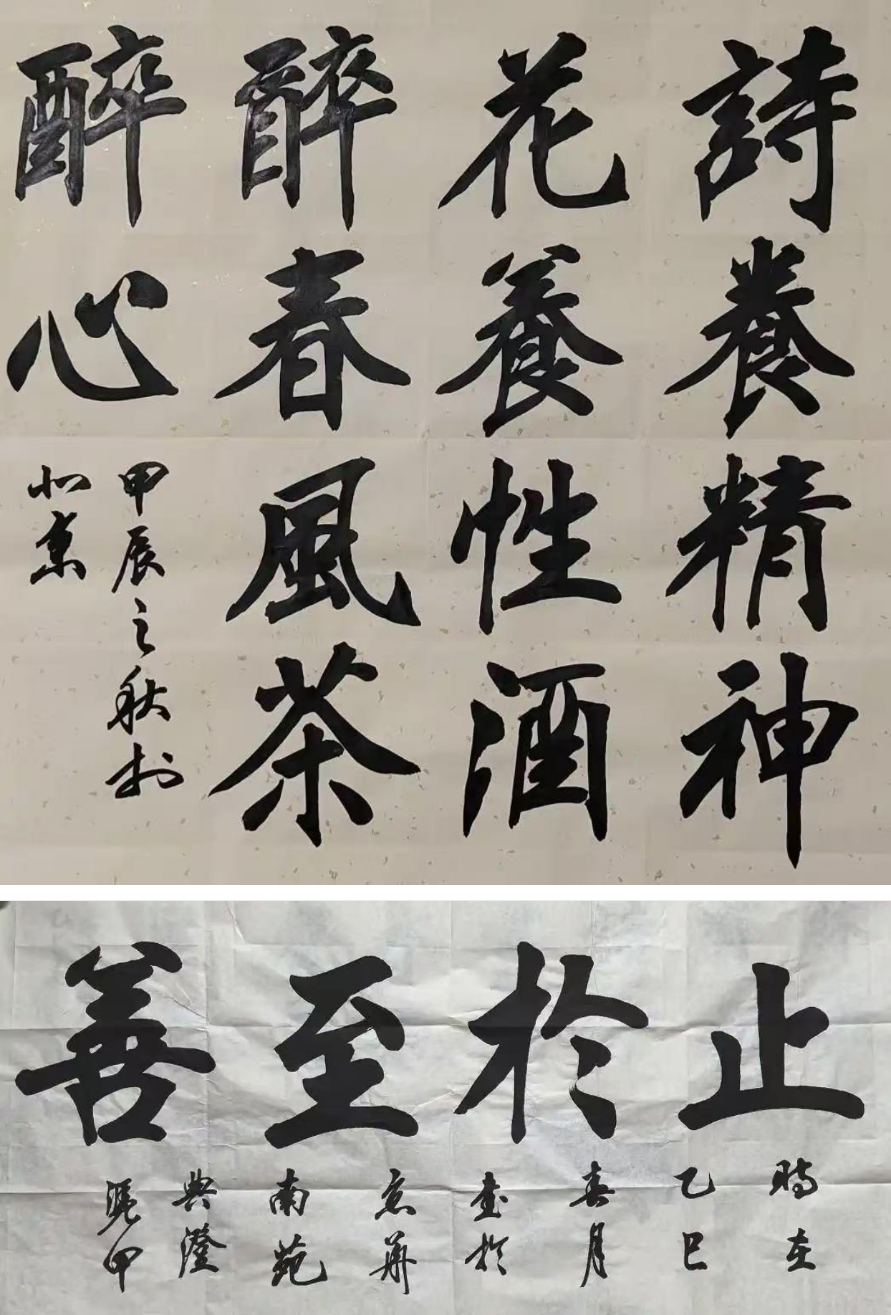 詩養精神
花養性酒
醉春風茶
醉心
甲辰之秋於
北京
止於至善
時在
乙巳
春月
書於
京華
南苑
典澄
甲